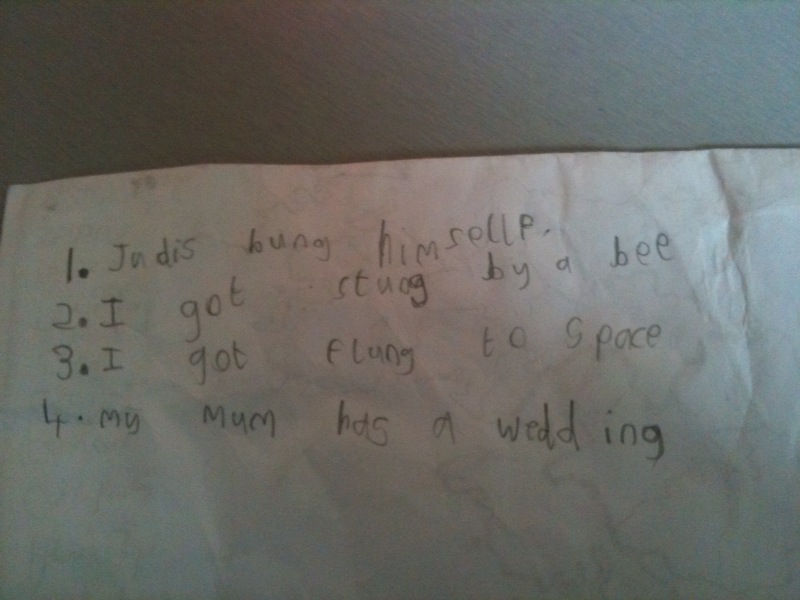 1. Judis hung himsellf.
2. I got stung by a bee
3. I got flung to Space
4. my mum has a wedding